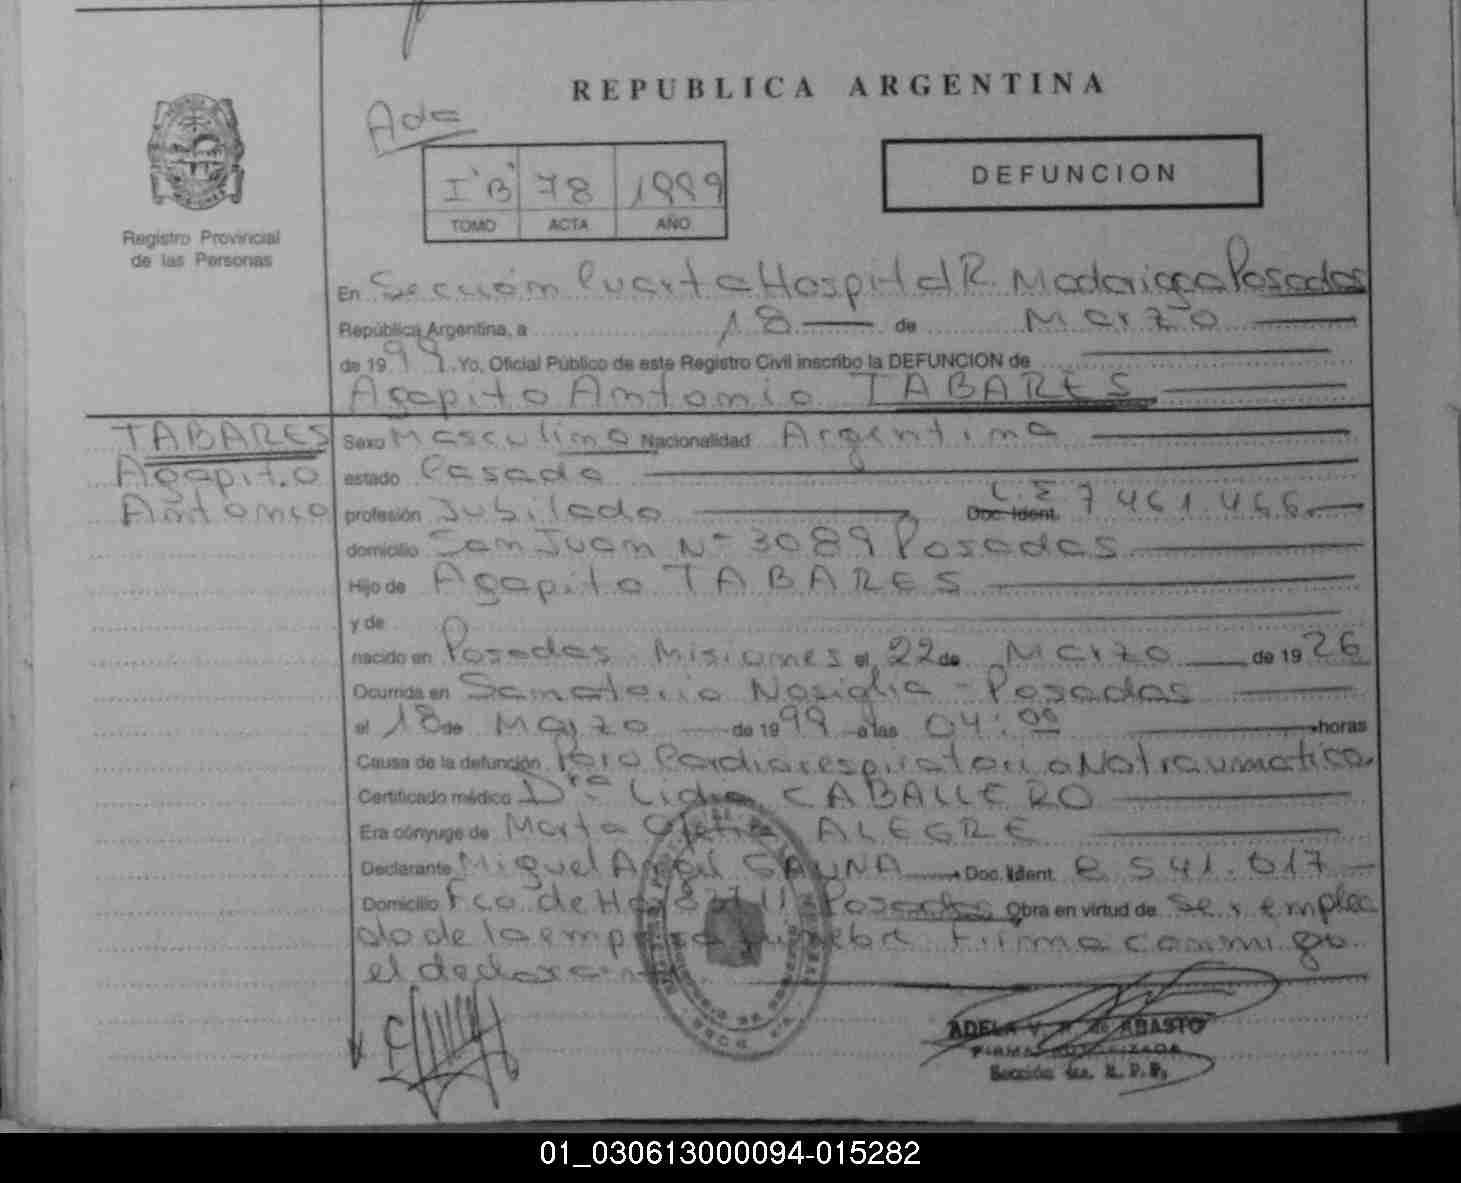 REPUBLICA ARGENTINA
Ada
I "B" 78 1999
TOMO ACTA AÑO
DEFUNCION
Registro Provincial
de las Personas
En Sección Cuarta Hospital R. Madariaga Posadas
República Argentina, a 18 de Marzo
de 1999. Yo, Oficial Público de este Registro Civil inscribo la DEFUNCION de
Agapito Antonio TABARES
TABARES
Agapito
Antonio
Sexo Masculino Nacionalidad Argentina
estado Casado
profesión Jubilado L.E Doc. Ident. 7461.466
domicilio San Juan Nº 3089 Posadas
Hijo de Agapito TABARES
y de
nacido en Posadas Misiones el 22 de Marzo de 1926
Ocurrida en Sanatorio Nosiglia - Posadas
el 18 de Marzo de 1999 a las 04:00 horas
Causa de la defunción Paro Cardiorespiratorio No traumatico.
Certificado médico Dra Lidia CABALLERO
Era cónyuge de Marta ALEGRE
Declarante Miguel Angel Doc. Ident. 8541.017
Domicilio Fco. de Haro Posadas Obra en virtud de ser emplea
do de la empresa funebre. Firma conmigo
el declarante
ADELA V. de ABASTO
FIRMA AUTORIZADA
Sección 4ta. R. P. P.
01_030613000094-015282